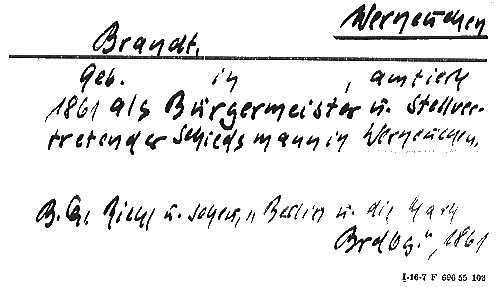 Werneuchen
Brandt,
Geb. in , amtiert
1861 als Bürgermeister u. Stellver-
tretender Schiedsmann in Werneuchen.
B. Ch. Riehl u. Scheu, "Berlin u. die Mark
Brdbg.", 1861
I-16-7 F 696 55 103